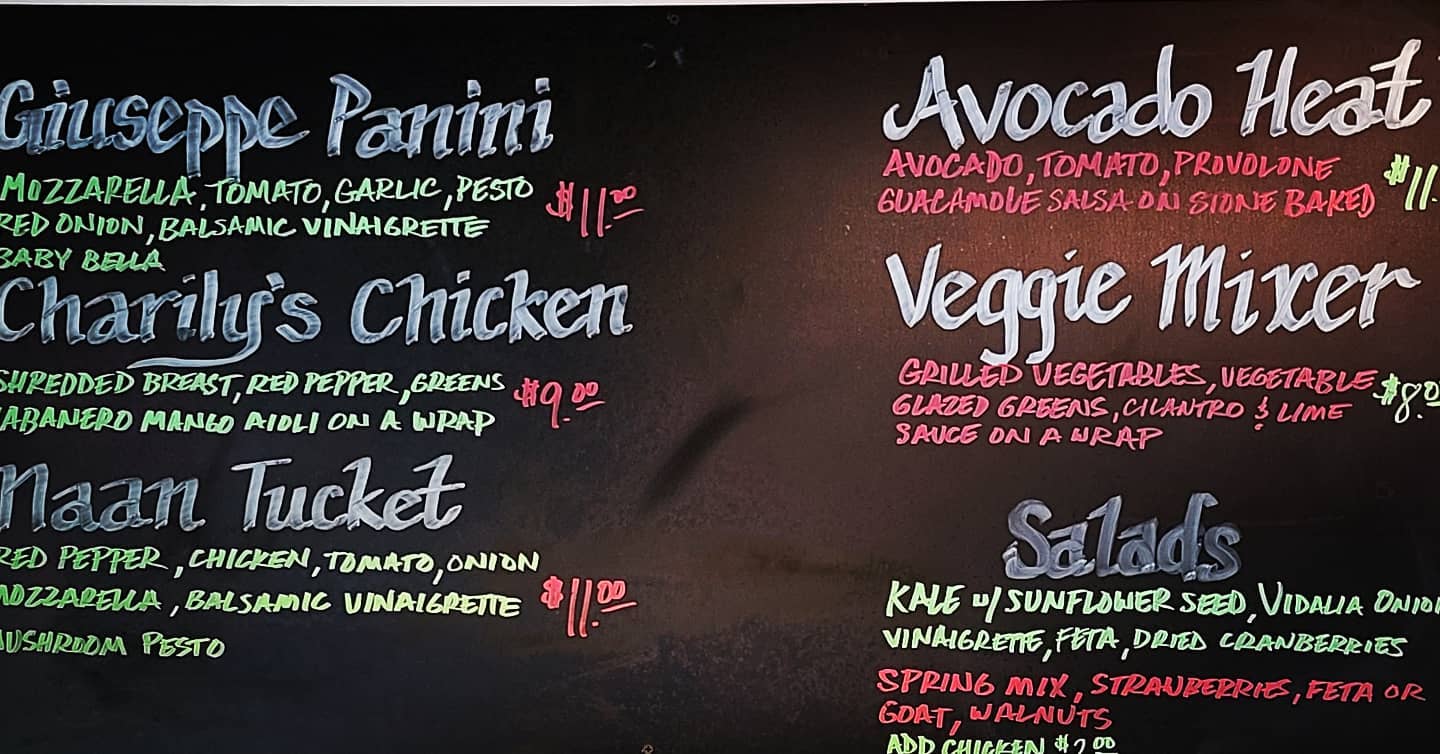 Giuseppe Panini
MOZZARELLA, TOMATO, GARLIC, PESTO
RED ONION, BALSAMIC VINAIGRETTE
BABY BELLA
$11.00
Charily's Chicken
SHREDDED BREAST, RED PEPPER, GREENS
HABANERO MANGO AIOLI ON A WRAP
$9.00
Naan Tucket
RED PEPPER, CHICKEN, TOMATO, ONION
MOZZARELLA, BALSAMIC VINAIGRETTE
MUSHROOM PESTO
$11.00
Avocado Heat
AVOCADO, TOMATO, PROVOLONE
GUACAMOLE SALSA ON STONE BAKED
$11.
Veggie Mixer
GRILLED VEGETABLES, VEGETABLE
GLAZED GREENS, CILANTRO & LIME
SAUCE ON A WRAP
$8.0
Salads
KALE w/ SUNFLOWER SEED, VIDALIA ONION
VINAIGRETTE, FETA, DRIED CRANBERRIES
SPRING MIX, STRAWBERRIES, FETA OR
GOAT, WALNUTS
ADD CHICKEN $2.00